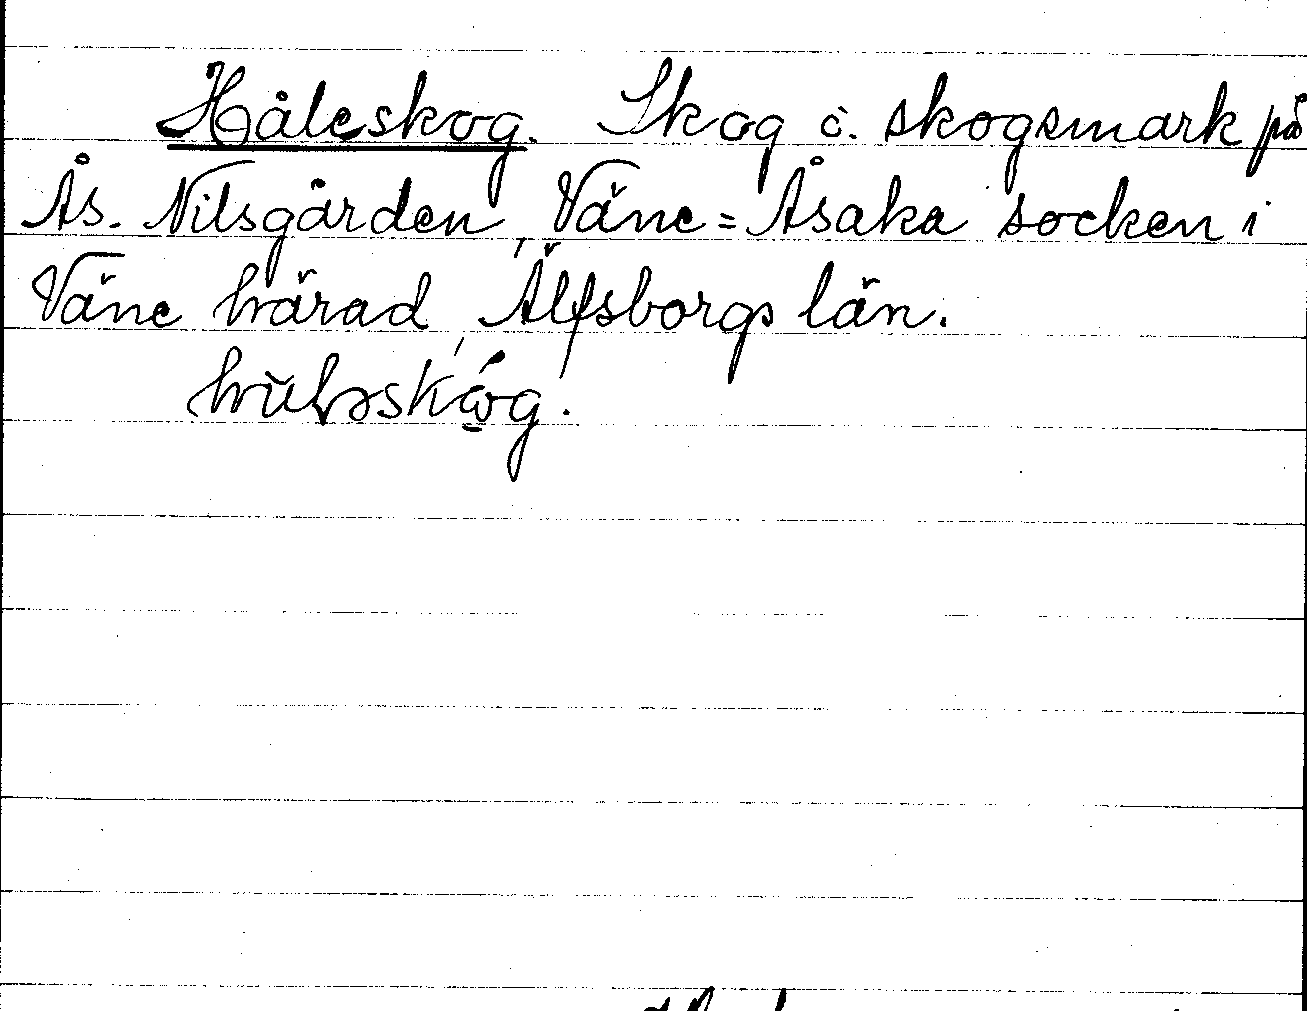 Håleskog. Skog o. skogsmark på
Ås. Nilsgården, Väne=Åsaka socken i
Väne härad, Älfsborgs län.